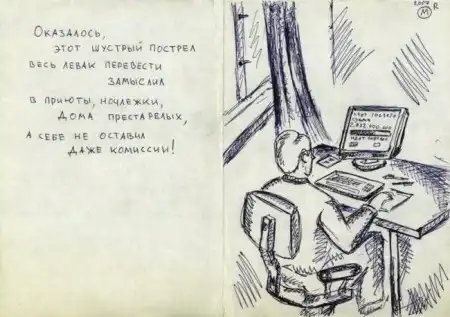 Оказалось,
этот шустрый пострел
весь левак перевести
замыслил
в приюты, ночлежки,
дома престарелых,
а себе не оставил
даже комиссии!
2007
М R